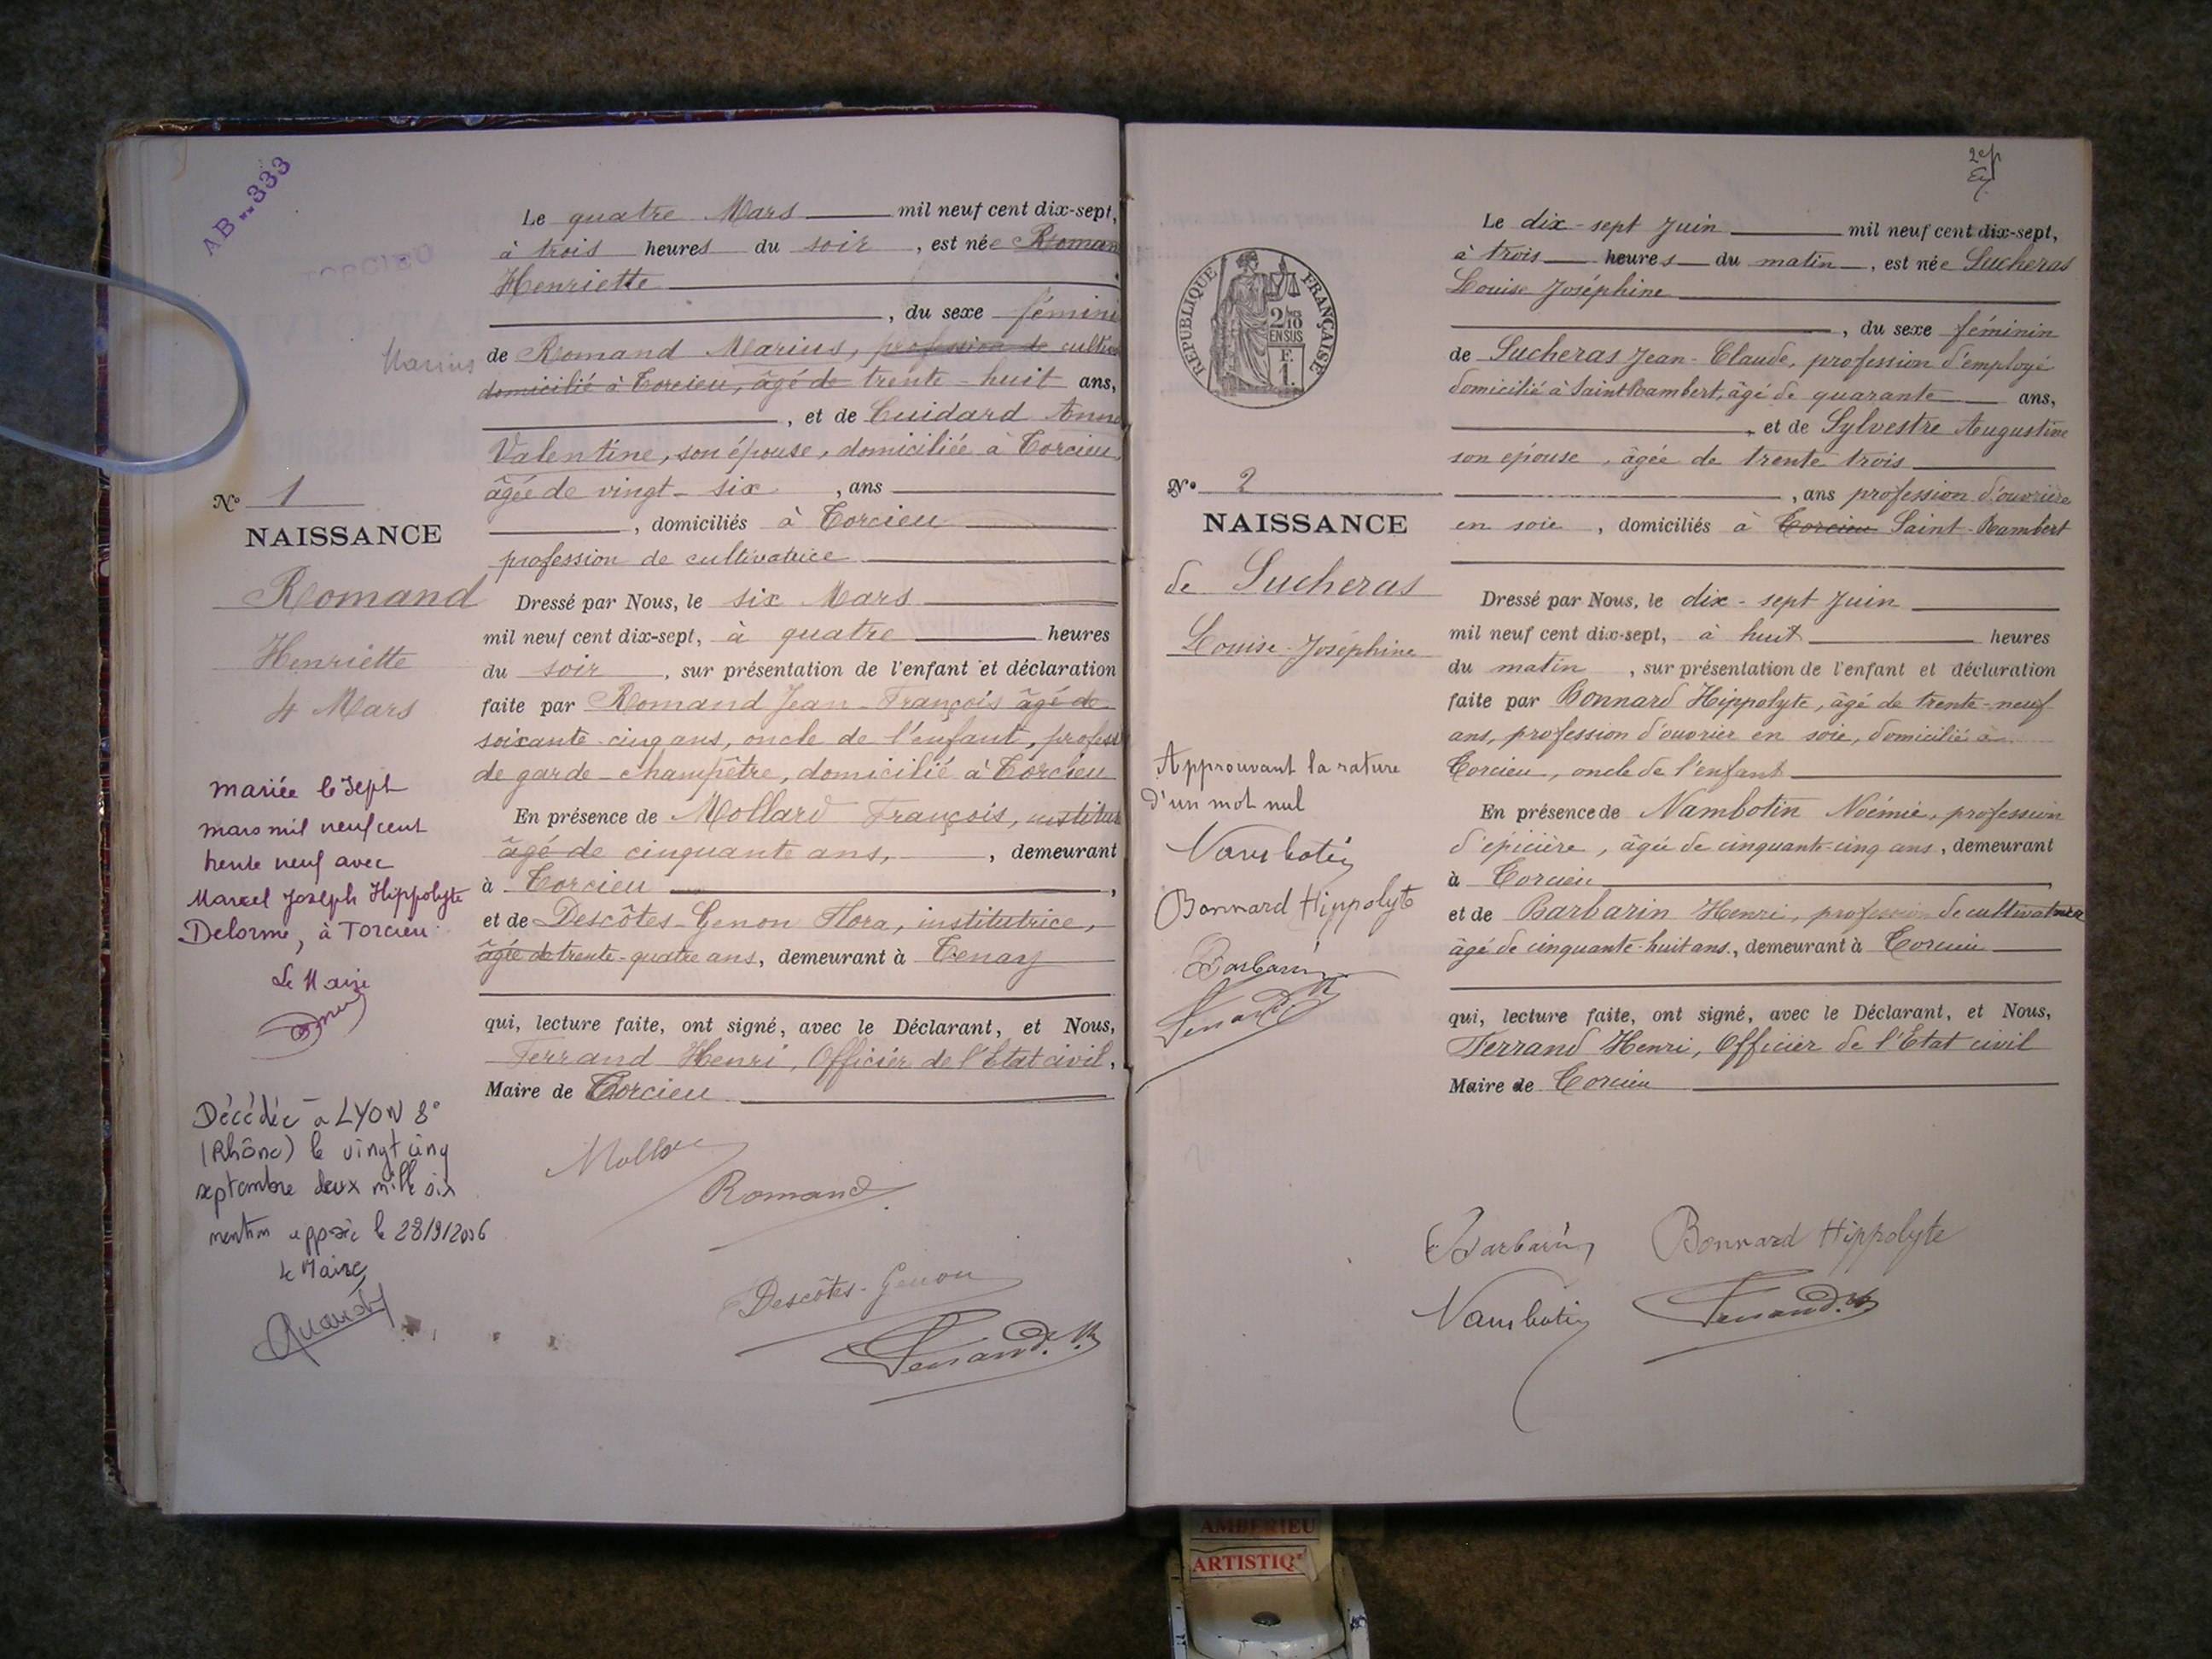 AB..333
TORCIEU
Le quatre Mars mil neuf cent dix-sept,
à trois heures du soir, est née Roman
Henriette
, du sexe fémini
Marius
de Romand Marius, profession de cultiv
domicilié à Torcieu, âgé de trente-huit ans,
, et de Cuidard Anne
Valentine, son épouse, domiciliée à Torcieu,
âgée de vingt-six, ans
, domiciliés à Torcieu
profession de cultivatrice
Dressé par Nous, le six Mars
mil neuf cent dix-sept, à quatre heures
du soir, sur présentation de l'enfant et déclaration
faite par Romand Jean-François âgé de
soixante-cinq ans, oncle de l'enfant, profess
de garde-champêtre, domicilié à Torcieu
En présence de Mollard François, institut
âgé de cinquante ans, , demeurant
à Torcieu ,
et de Descôtes-Genon Flora, institutrice,
âgée de trente-quatre ans, demeurant à Tenay
qui, lecture faite, ont signé, avec le Déclarant, et Nous,
Ferrand Henri, Officier de l'Etat civil,
Maire de Torcieu
Romand
Descôtes-Genon
Ferrand. H
N° 1
NAISSANCE
Romand
Henriette
4 Mars
mariée le sept
mars mil neuf cent
trente neuf avec
Marcel Joseph Hippolyte
Delorme, à Torcieu
Le Maire
Décédée à LYON 8°
(Rhône) le vingt cinq
septembre deux mille six
mention apposée le 28/9/2006
Le Maire
2e f
RÉPUBLIQUE FRANÇAISE
2/10
EN SUS
F.
1.
N° 2
NAISSANCE
de Sucheras
Louise-Joséphine
Approuvant la rature
d'un mot nul
Nambotin
Bonnard Hippolyte
Barbarin
Ferrand H
Le dix-sept Juin mil neuf cent dix-sept,
à trois heures du matin, est née Sucheras
Louise Joséphine
, du sexe féminin
de Sucheras Jean-Claude, profession d'employé
domicilié à Saint Rambert, âgé de quarante ans,
, et de Sylvestre Augustine
son épouse, âgée de trente trois
, ans profession d'ouvrière
en soie, domiciliés à Torcieu Saint-Rambert
Dressé par Nous, le dix-sept Juin
mil neuf cent dix-sept, à huit heures
du matin, sur présentation de l'enfant et déclaration
faite par Bonnard Hippolyte, âgé de trente-neuf
ans, profession d'ouvrier en soie, domicilié à
Torcieu, oncle de l'enfant
En présence de Nambotin Noémie, profession
d'épicière, âgée de cinquante-cinq ans, demeurant
à Torcieu ,
et de Barbarin Henri, profession de cultivateur
âgé de cinquante-huit ans, demeurant à Torcieu
qui, lecture faite, ont signé, avec le Déclarant, et Nous,
Ferrand Henri, Officier de l'Etat civil
Maire de Torcieu
Barbarin Bonnard Hippolyte
Nambotin Ferrand. H
AMBERIEU
ARTISTIQ